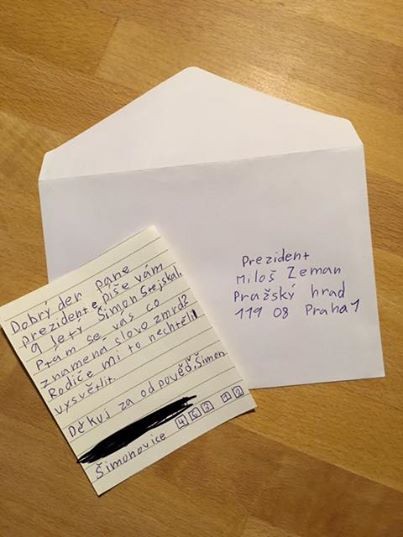 Dobrý den pane
prezidente, píše vám
9 letý Šimon Stejskal.
Ptam se vás co
znamená slovo zmrd?
Rodiče mi to nechtěli
vysvětlit.
Děkuj za odpověď, Šimon
Šimonovice 462 12
Prezident
Miloš Zeman
Pražský hrad
119 08 Praha 1